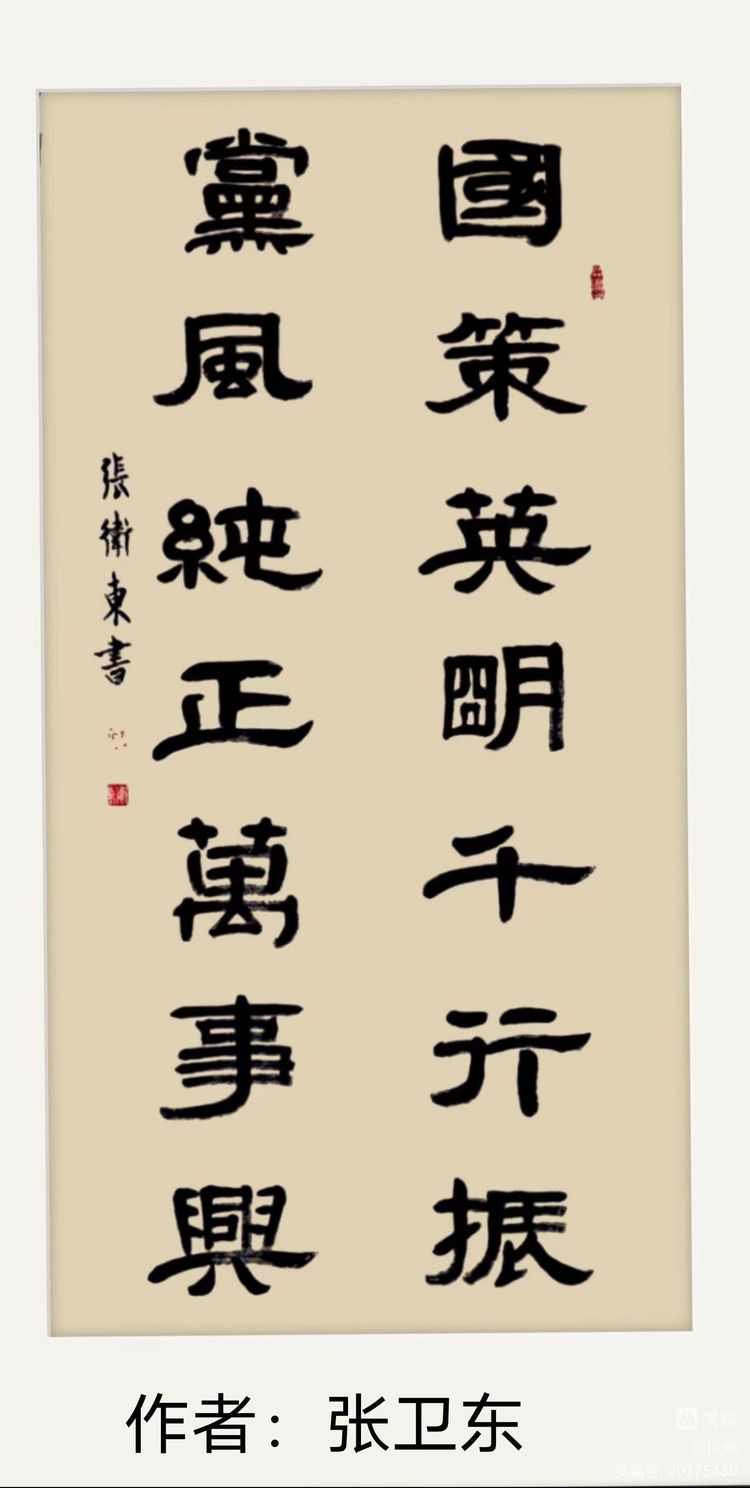 國策英明千行振
黨風純正萬事興
張衛東書
作者：张卫东
美篇
@凤凰
美篇号: 20775480